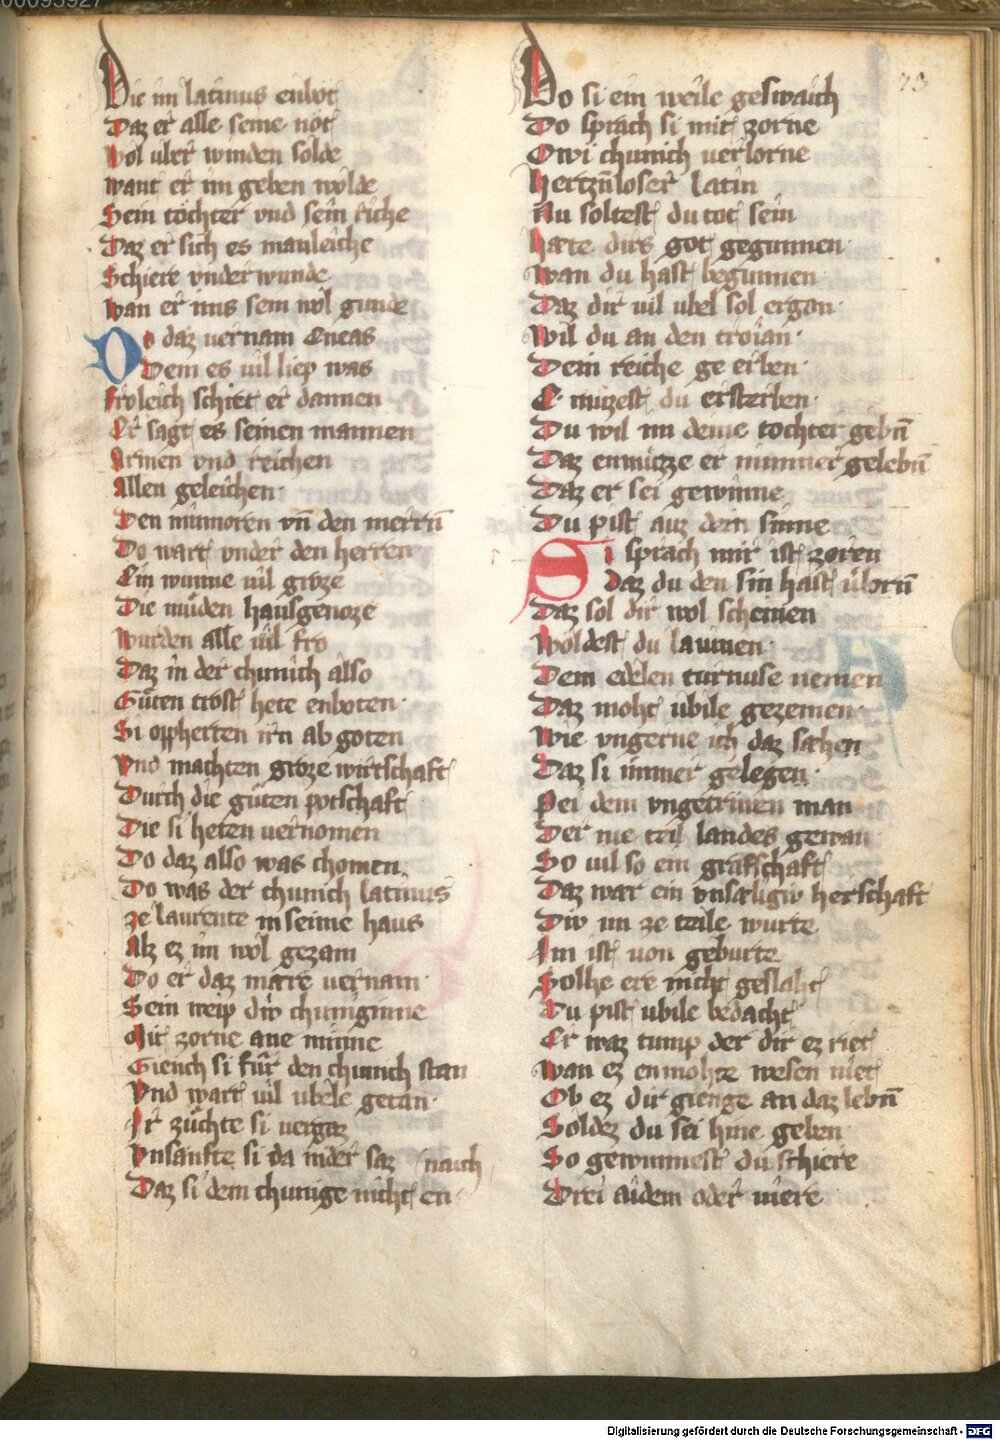 Die im latinus enbot
Daz er alle seine not
Wol uber winden solde
want er im geben wolde
Sein tochter vnd sein riche
Daz er sich es manleiche
Schiere vnderwunde
wan er ims sein wol gunde
Do daz uernam Eneas
Dem es uil liep was
froleich schiet er dannen
Er sagt es seinen mannen
Armen vnd reichen
Allen geleichen
Den minnoren vn̄ den merrn̄
Do wart vnder den herren
Ein wunne uil groze
Die müden hausgenoze
wurden alle uil fro
Daz in der chunich also
Güten trost hete enboten
Si opherten irn ab goten
Vnd machten groze wirtschaft
Durch die güten potschaft
Die si heten uernomen
Do daz also was chomen
Do was der chunich latinus
ze laurente in seime haus
Alz ez im wol gezam
Do er daz mare uernam
Sein weip diw chuniginne
Mit zorne ane minne
Giench si für den chunich stan
Vnd wart uil ubele getan
Ir züchte si uergaz
Vnsanfte si da nider saz
Daz si dem chunige nicht en nauch
73
Do si ein weile geswaich
Do sprach si mit zorne
Owi chunich uerlorne
hertzen̄loser latin
Nu soltest du tot sein
hate dirs got gegunnen
wan du hast begunnen
Daz dir uil ubel sol ergan
Wil du an den troian
Dein reiche ge erben
E muzest du ersterben
Du wil im deine tochter gebn̄
Daz enmuzze er nimmer gelebn̄
Daz er sei gewinne
Du pist auz dein sinne
Si sprach mir ist zoren
daz du den sin hast ülorn̄
Daz sol dir wol scheinen
Woldest du lauinen
Dem edelen turnuse nemen
Daz moht ubile gezemen
Wie vngerne ich daz sæhen
Daz si immer gelegen
Pei dem vngetriwen man
Der nie teil landes gewan
So uil so ein grafschaft
Daz war ein vnsæligiw herschaft
Diw im ze teile wurte
Im ist von geburte
Solhe ere nicht geslaht
Du pist ubile bedacht
Er waz tump der dir ez riet
wan ez enmohte wesen niet
Ob ez dir gienge an daz lebn̄
Soldez du sei hine geben
So gewinnest du schiere
Drei aidem oder uiere
Digitalisierung gefördert durch die Deutsche Forschungsgemeinschaft - DFG